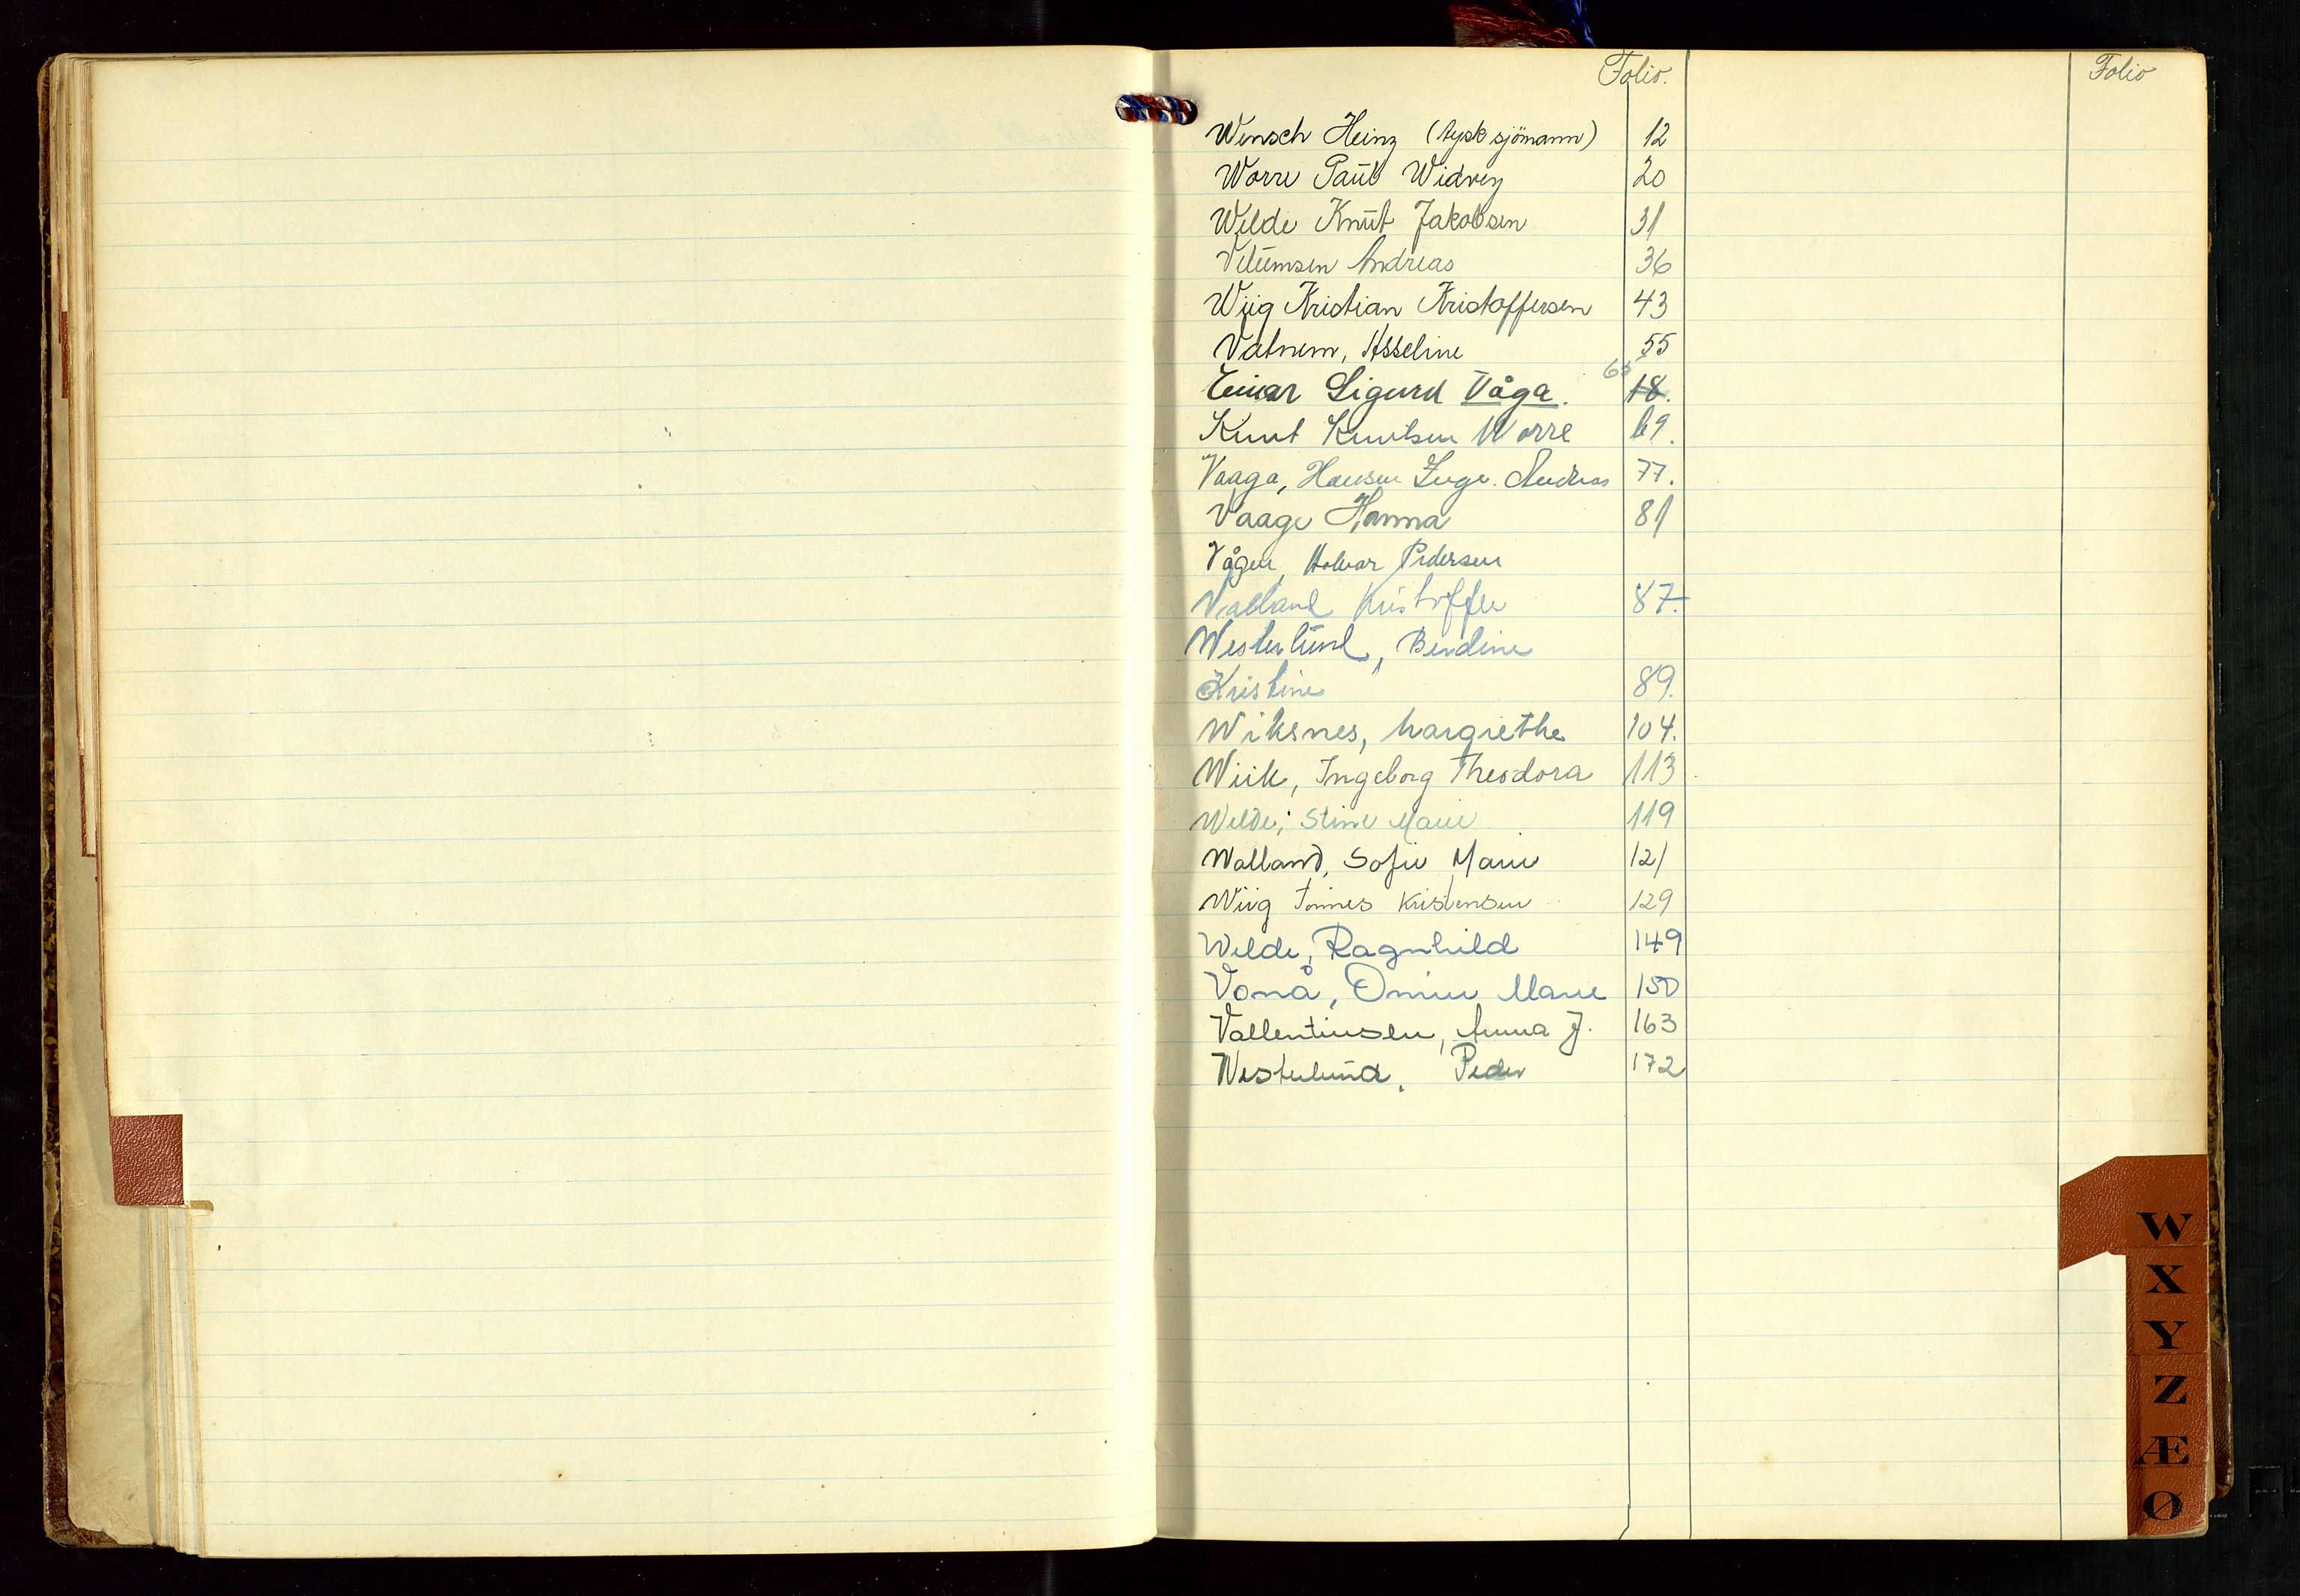 Folio. Folio
Wensch Heinz (tysk sjömann) 12
Worre Paul Widrey 20
Welde Knut Jakobsen 31
Vilumsen Andreas 36
Wiig Kristian Kristoffersen 43
Vatnem, Asseline 55
Einar Sigurd Våga. 65 18.
Knut Knutsen Worre 69.
Vaaga, Hansen Inge. Andreas 77.
Vaage Hanna 81
Vågen, Halvar Pedersen
Valland Kristoffer 87.
Westerlund, Berdine
Kristine 89.
Wiksnes, Margrethe 104.
Wiik, Ingeborg Theodora 113
Welde, Stine Marie 119
Walland, Sofie Marie 121
Wiig Tønnes Kristensen 129
Welde, Ragnhild 149
Vonå, Omine Marie 150
Vallentinsen, Anna J. 163
Westerlund. Peder 172
W
X
Y
Z
Æ
Ø